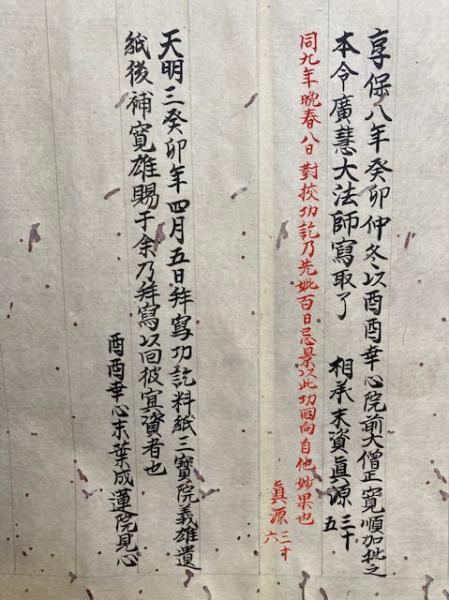 享保八年癸卯仲冬以酉酉幸心院前大僧正寛順加批之
本令廣慧大法師寫取了　相承末資眞源三十五
同九年晩春八日對挍功訖乃先妣百日忌景以此功回向自他妙果也
眞源三十六
天明三癸卯年四月五日拜寫功訖料紙三寶院義雄遺
紙後補寛雄賜于余乃拜寫以回彼冥資者也
酉酉幸心末葉成蓮院見心